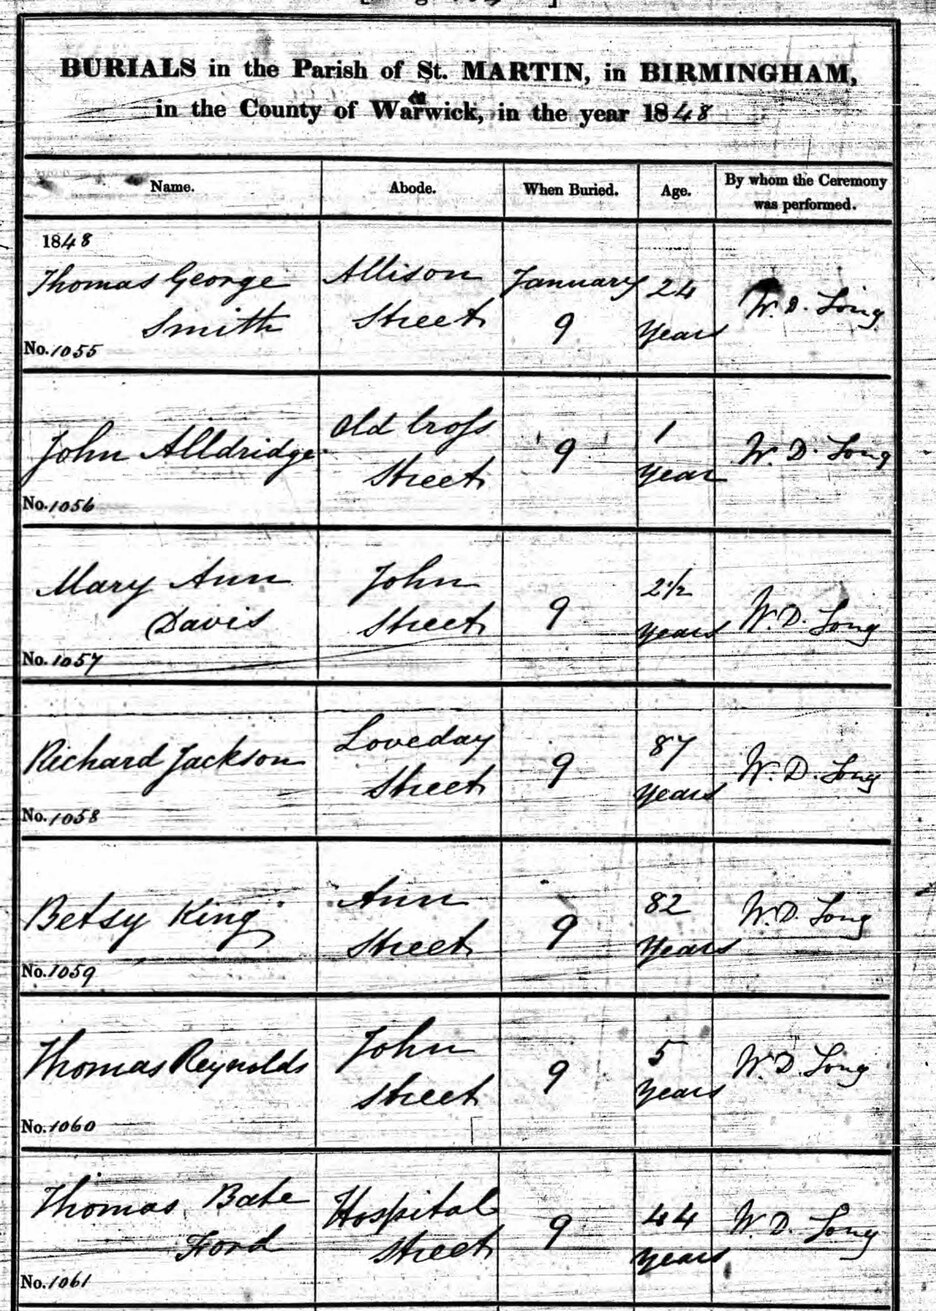 BURIALS in the Parish of St. MARTIN, in BIRMINGHAM,
in the County of Warwick, in the year 1848
Name. Abode. When Buried. Age. By whom the Ceremony
was performed.
1848
Thomas George Allison January 24 W. D. Long
Smith Street 9 Years
No. 1055
John Alldridge Old Cross 9 1 W. D. Long
Street Year
No. 1056
Mary Ann John 9 2 1/2 W. D. Long
Davis Street Years
No. 1057
Richard Jackson Loveday 9 87 W. D. Long
Street Years
No. 1058
Betsy King Ann 9 82 W. D. Long
Street Years
No. 1059
Thomas Reynolds John 9 5 W. D. Long
Street Years
No. 1060
Thomas Bate Hospital 9 44 W. D. Long
Ford Street Years
No. 1061